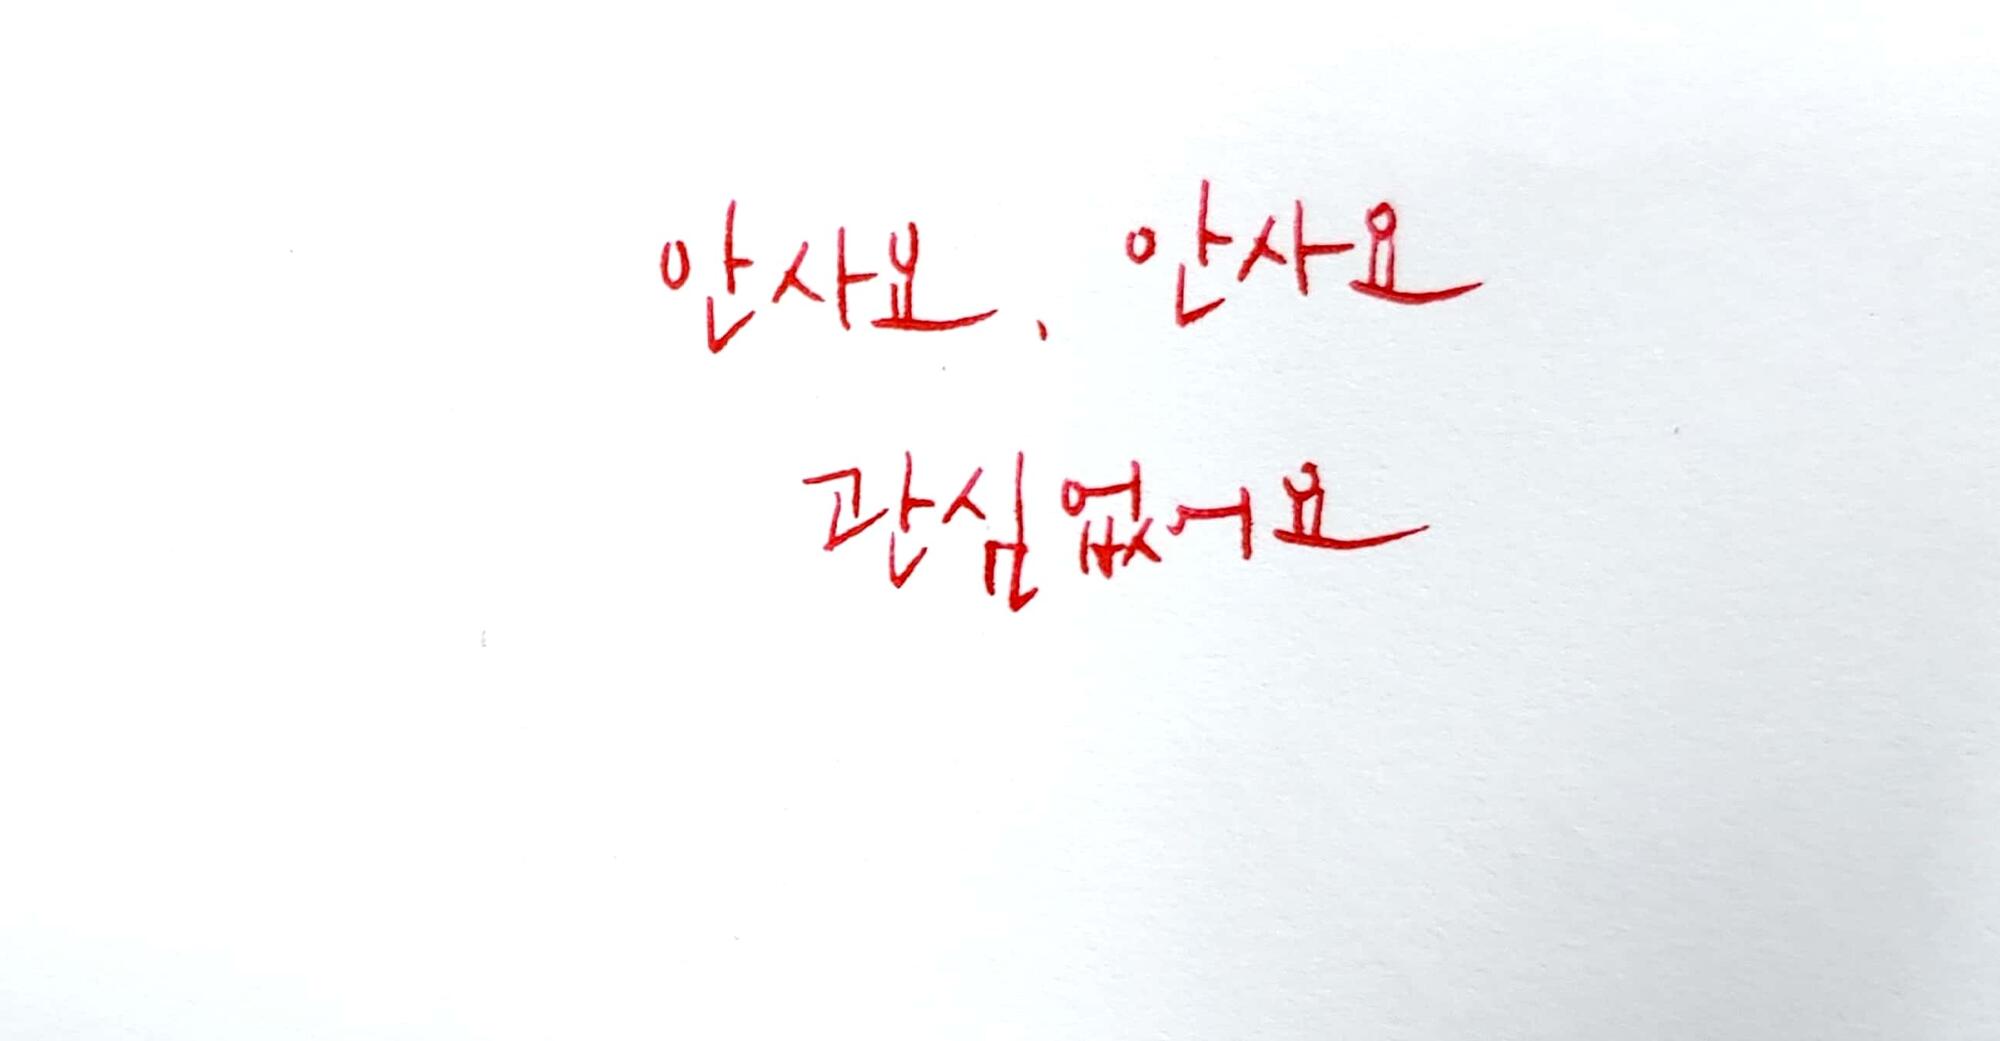 안사요, 안사요
관심없어요